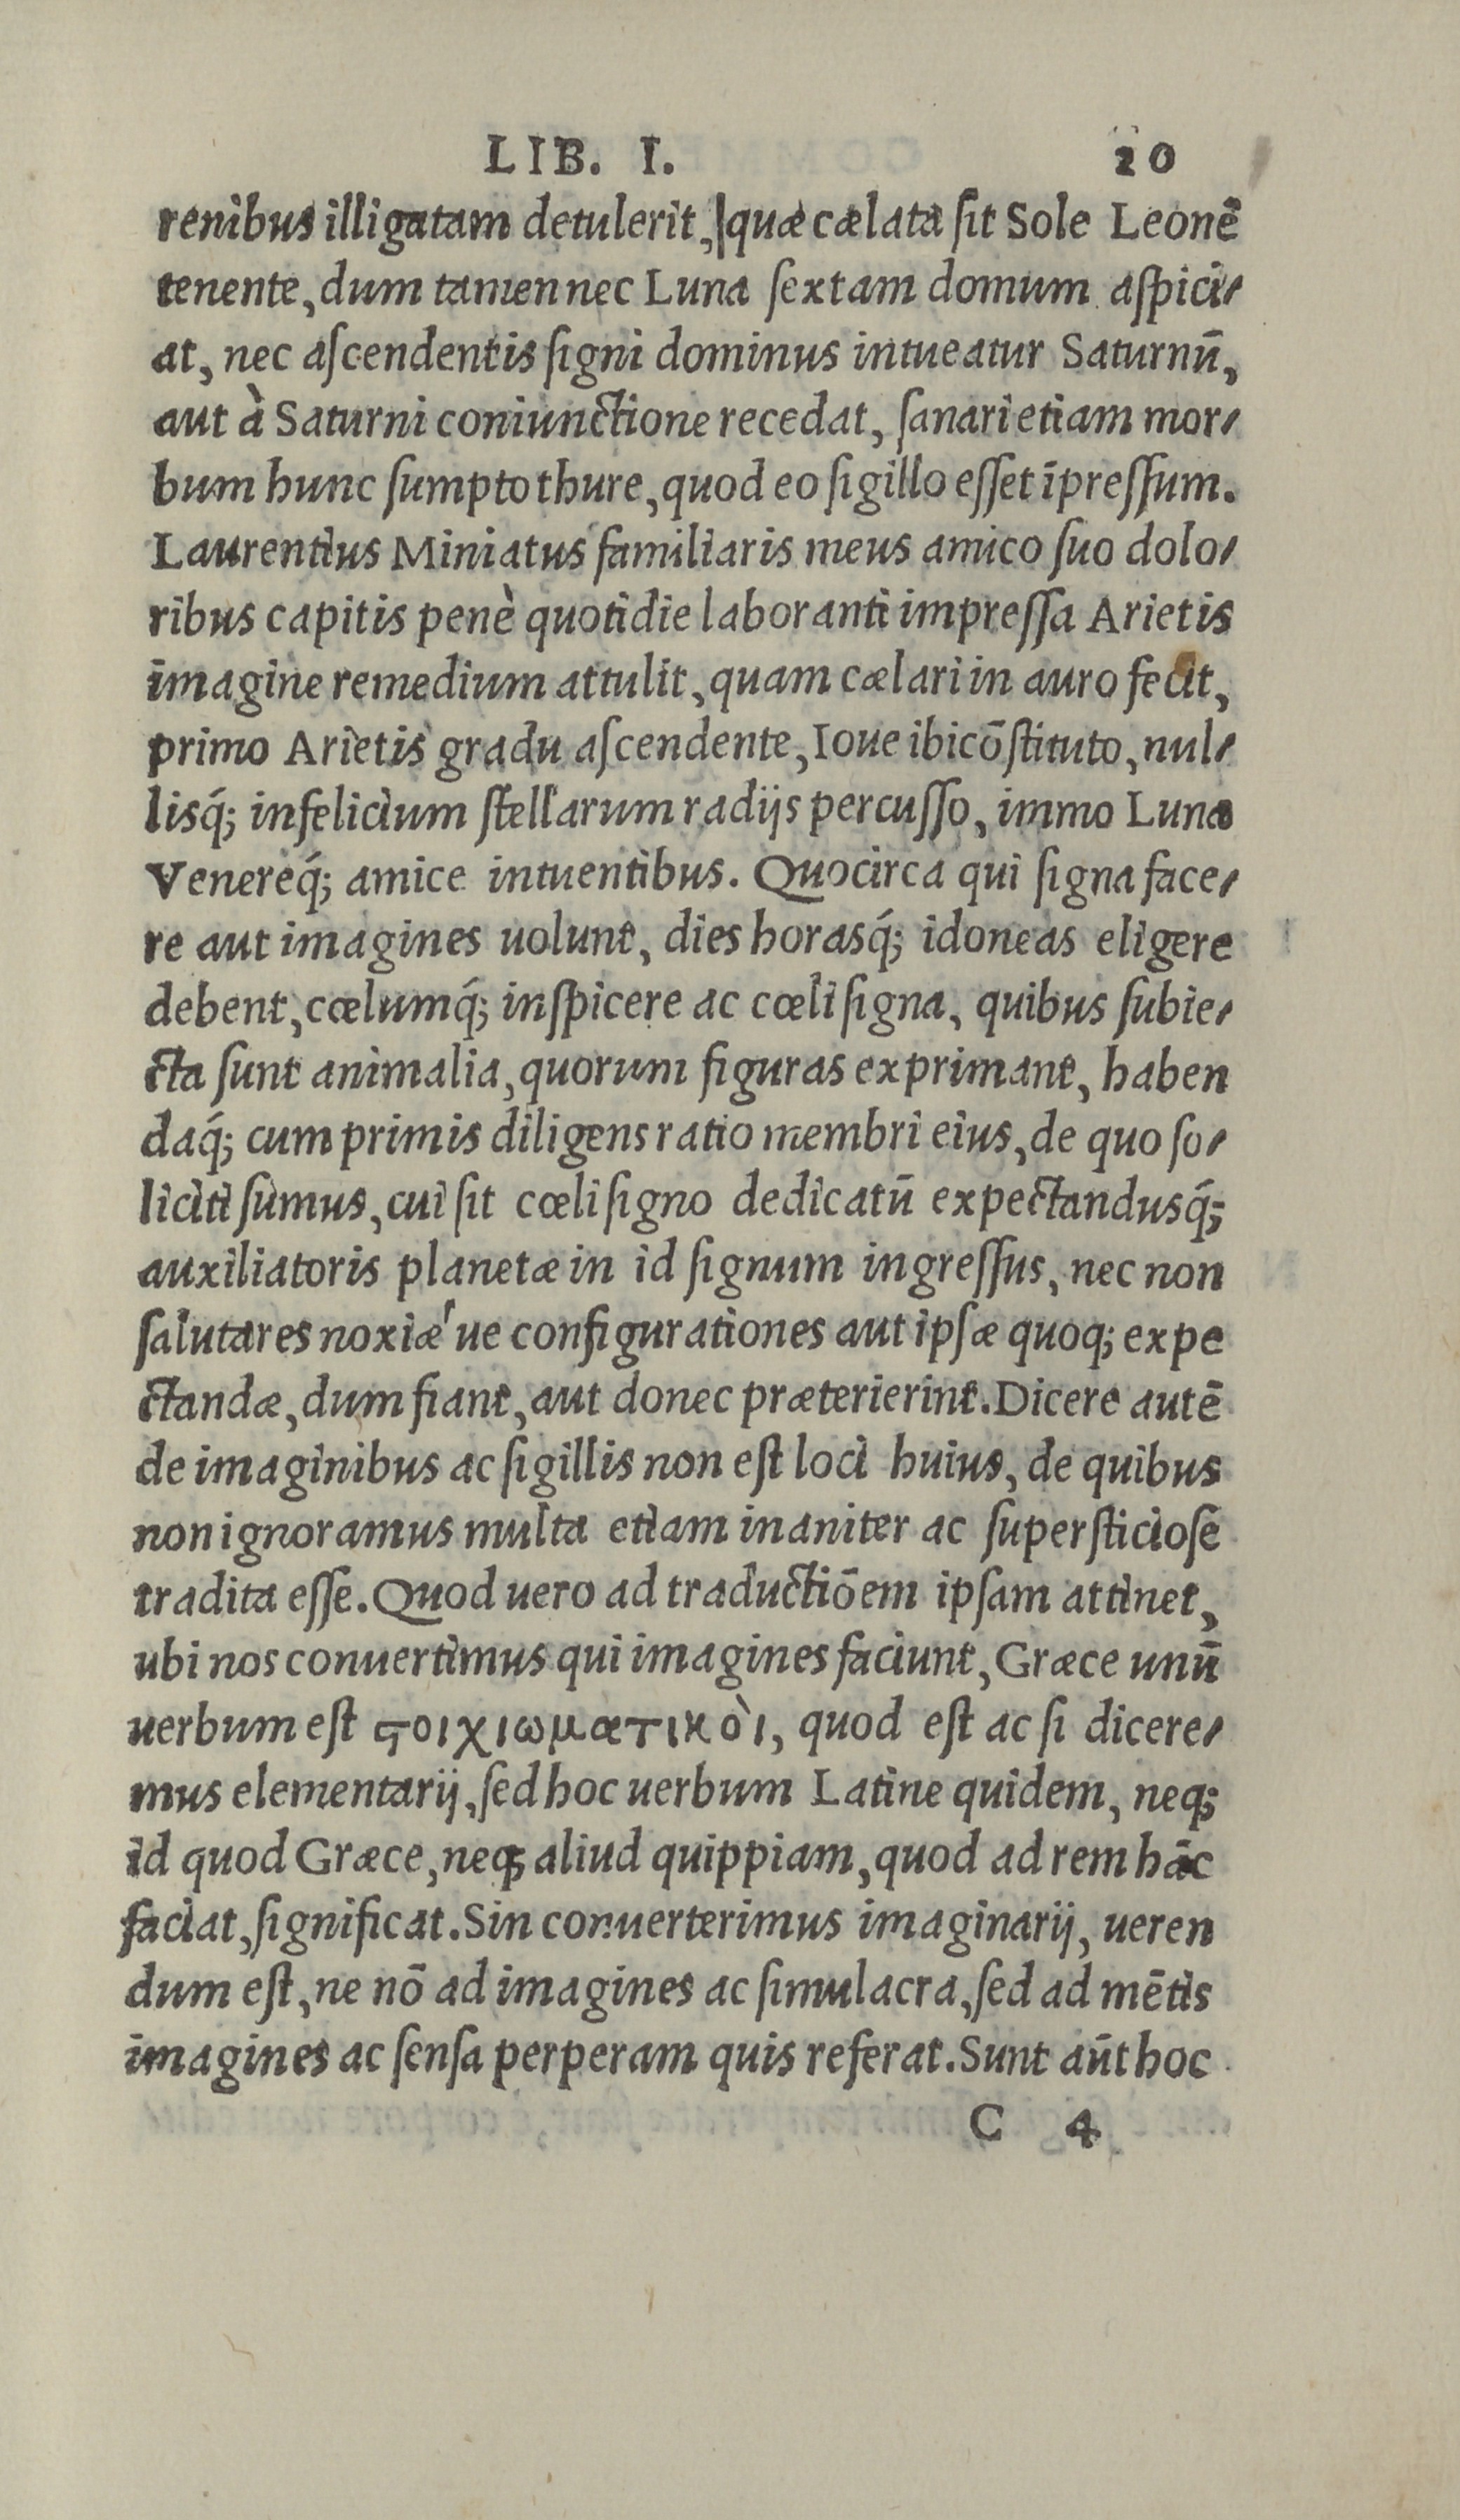 LIB. I. 20
renibus illigatam detulerit, quæ cælata ſit Sole Leonē
tenente, dum tamen nec Luna ſextam domum aſpici-
at, nec aſcendentis ſigni dominus intueatur Saturnū,
aut à Saturni coniunctione recedat, ſanari etiam mor-
bum hunc ſumpto thure, quod eo ſigillo eſſet īpreſſum.
Laurentius Miniatus familiaris meus amico ſuo dolo-
ribus capitis penè quotidie laboranti impreſſa Arietis
imagine remedium attulit, quam cælari in auro fecit,
primo Arietis gradu aſcendente, Ioue ibi cōſtituto, nul-
lisq́; infelicium ſtellarum radijs percuſſo, immo Luna
Venereq́; amice intuentibus. Quocirca qui ſigna face-
re aut imagines uolunt, dies horasq́; idoneas eligere
debent, cœlumq́; inſpicere ac cœli ſigna, quibus ſubie-
cta ſunt animalia, quorum figuras exprimant, haben
daq́; cum primis diligens ratio membri eius, de quo ſo-
liciti ſumus, cui ſit cœli ſigno dedicatū expectandusq́;
auxiliatoris planetæ in id ſignum ingreſſus, nec non
ſalutares noxiæ'ue configurationes aut ipſæ quoq; expe
ctandæ, dum fiant, aut donec præterierint. Dicere autē
de imaginibus ac ſigillis non eſt loci huius, de quibus
non ignoramus multa etiam inaniter ac ſuperſticioſe
tradita eſſe. Quod uero ad traductiōem ipſam attinet,
ubi nos conuertimus qui imagines faciunt, Græce unū
uerbum eſt ϛοιχιωματικὸι, quod eſt ac ſi dicere-
mus elementarij, ſed hoc uerbum Latine quidem, neq;
id quod Græce, neq; aliud quippiam, quod ad rem hāc
faciat, ſignificat. Sin conuerterimus imaginarij, ueren
dum eſt, ne nō ad imagines ac ſimulacra, ſed ad mētis
imagines ac ſenſa perperam quis referat. Sunt aūt hoc
C 4